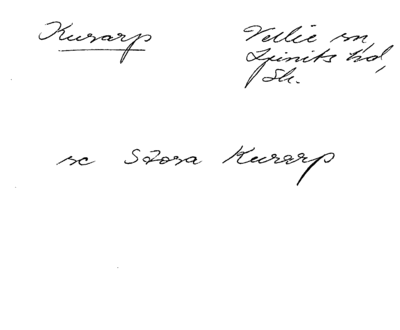 Kusarp
Vellie sn,
Ljunits hd,
Sk.
se Stora Kusarp